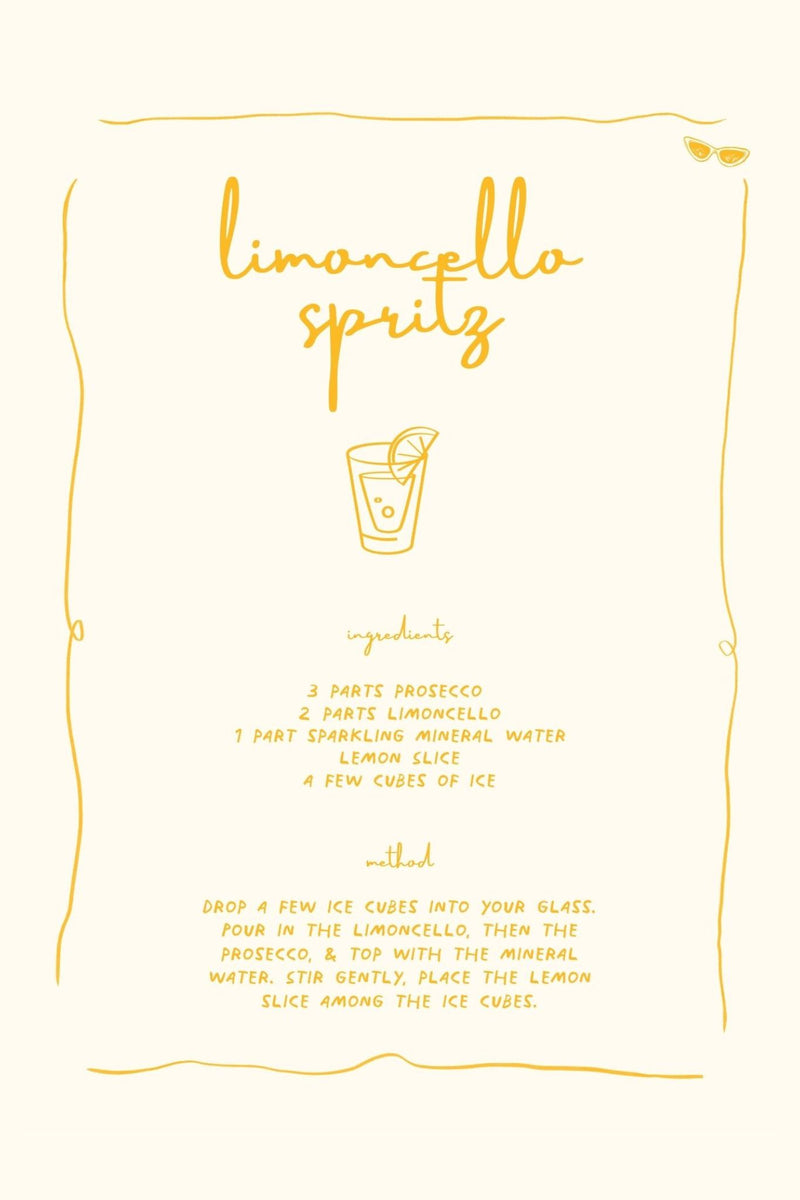 limoncello
spritz
ingredients
3 PARTS PROSECCO
2 PARTS LIMONCELLO
1 PART SPARKLING MINERAL WATER
LEMON SLICE
A FEW CUBES OF ICE
method
DROP A FEW ICE CUBES INTO YOUR GLASS.
POUR IN THE LIMONCELLO, THEN THE
PROSECCO, & TOP WITH THE MINERAL
WATER. STIR GENTLY, PLACE THE LEMON
SLICE AMONG THE ICE CUBES.